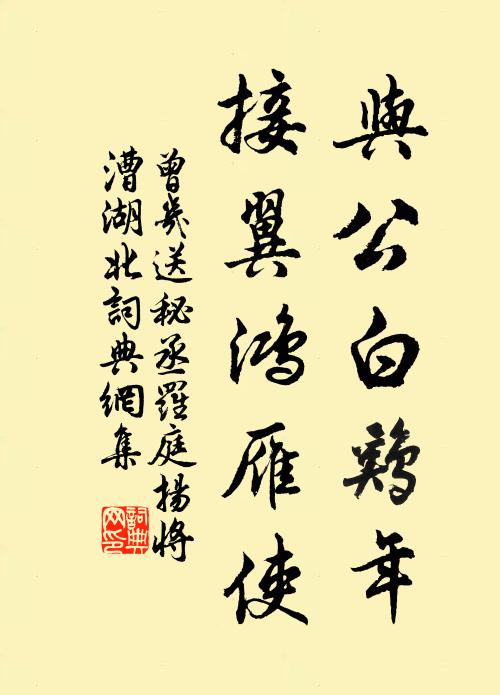 與公白鷄年
接翼鴻雁使
曾幾送秘丞羅庭揚將
漕湖北詞典網集
詞典
网印